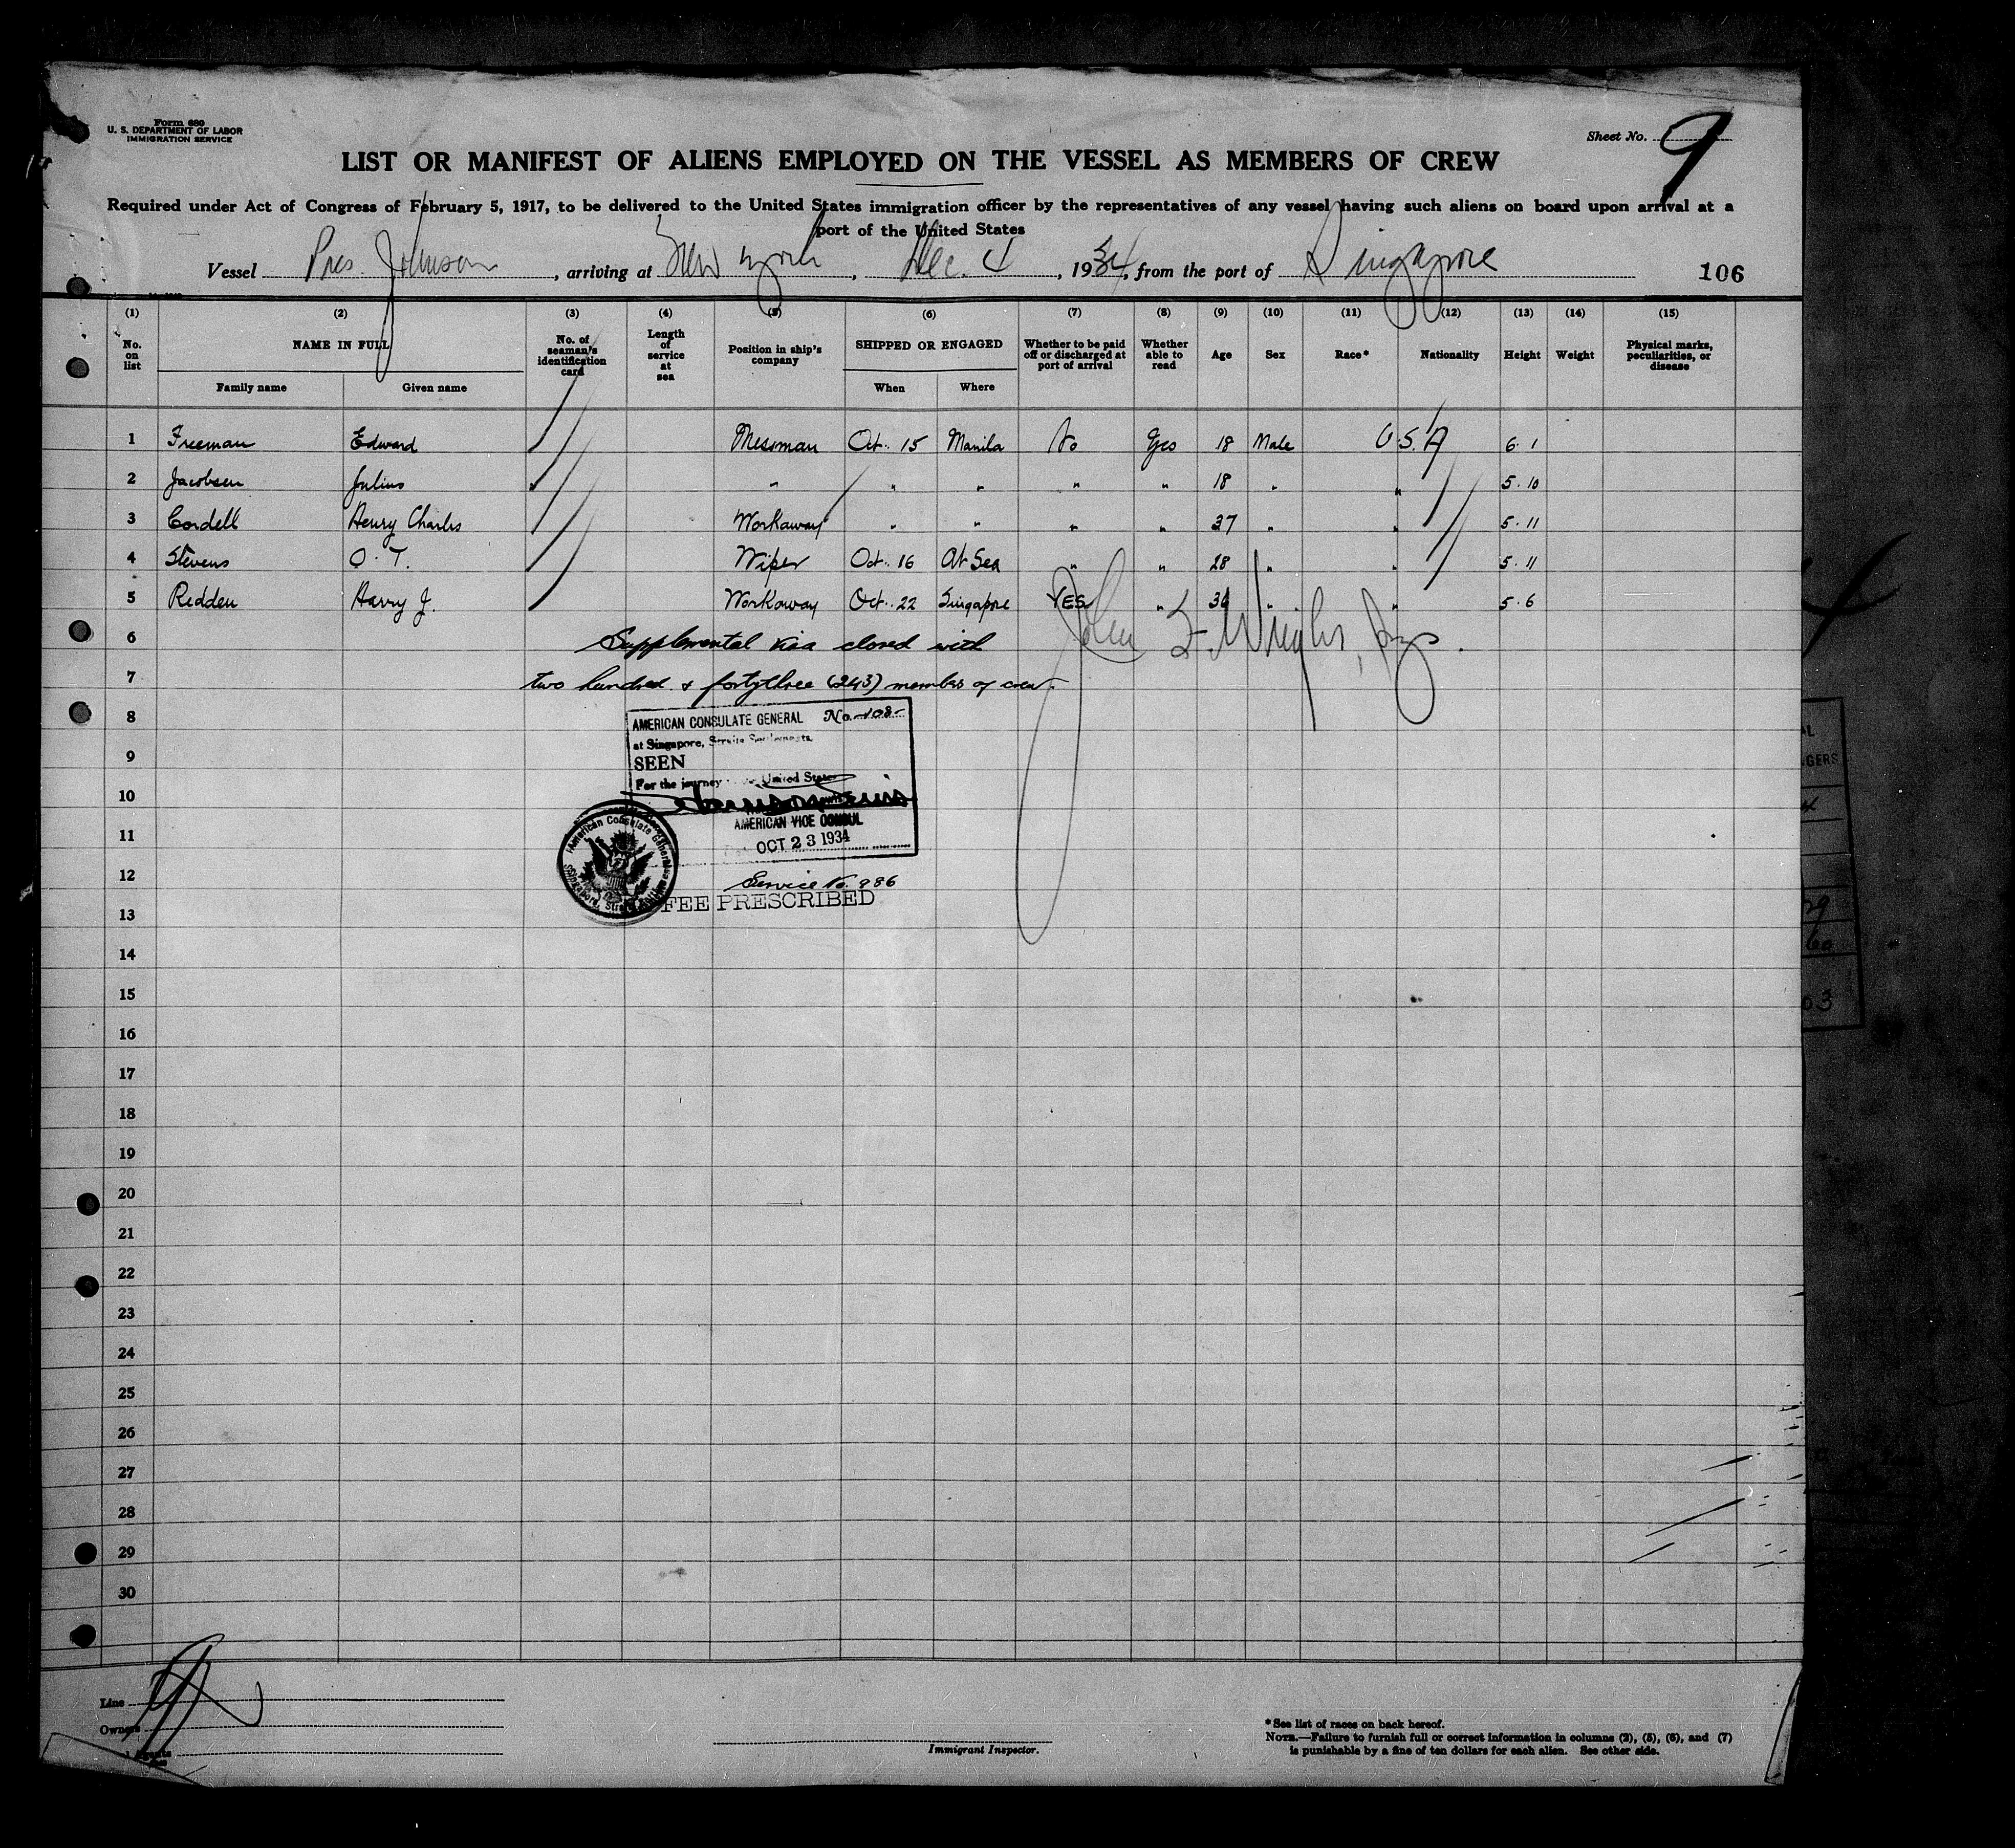 Form 680
U. S. DEPARTMENT OF LABOR
IMMIGRATION SERVICE
Sheet No. 9
LIST OR MANIFEST OF ALIENS EMPLOYED ON THE VESSEL AS MEMBERS OF CREW
Required under Act of Congress of February 5, 1917, to be delivered to the United States immigration officer by the representatives of any vessel having such aliens on board upon arrival at a
port of the United States
Vessel Pres. Johnson, arriving at New York, Dec. 4, 1934, from the port of Singapore 106
(1) (2) (3) (4) (5) (6) (7) (8) (9) (10) (11) (12) (13) (14) (15)
No. on list NAME IN FULL No. of seaman's identification card Length of service at sea Position in ship's company SHIPPED OR ENGAGED Whether to be paid off or discharged at port of arrival Whether able to read Age Sex Race* Nationality Height Weight Physical marks, peculiarities, or disease
Family name Given name When Where
1 Freeman Edward Messman Oct. 15 Manila No Yes 18 Male U.S.A 6.1
2 Jacobsen Julius " " " " " 18 " " 5.10
3 Cordell Henry Charles Workaway " " " " 37 " " 5.11
4 Stevens O. T. Wiper Oct. 16 At Sea " " 28 " " 5.11
5 Redden Harry J. Workaway Oct. 22 Singapore YES " 36 " " 5.6
6 Supplemental visa closed with
7 two hundred & forty three (243) members of crew.
8 AMERICAN CONSULATE GENERAL No. 108-
at Singapore, Straits Settlements
9 SEEN
For the journey United States
10
AMERICAN VICE CONSUL
11 OCT 23 1934
American Consulate General
Singapore, Straits Settlements
12 Service No. 886
13 FEE PRESCRIBED
14
15
16
17
18
19
20
21
22
23
24
25
26
27
28
29
30
Line
Owners
Agents
Immigrant Inspector.
*See list of races on back hereof.
NOTE.—Failure to furnish full or correct information in columns (2), (5), (6), and (7)
is punishable by a fine of ten dollars for each alien. See other side.